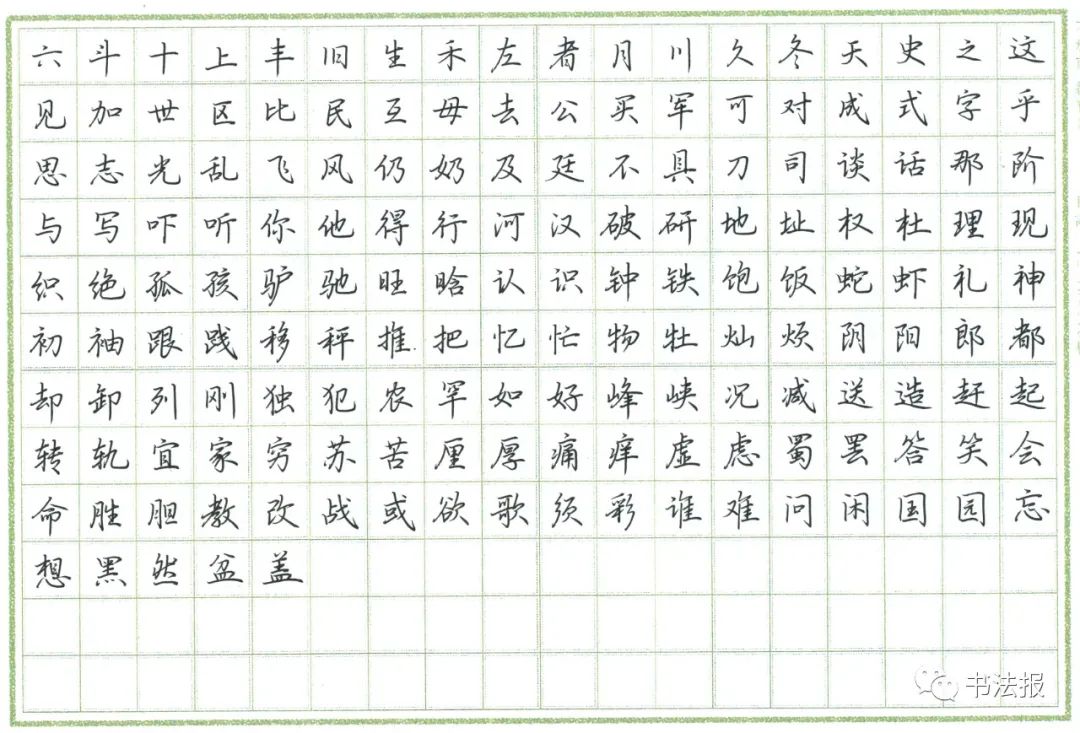 六斗十上丰旧生禾左者月川久冬天史之这
见加世区比民互毋去公买军可对成式字乎
思志光乱飞风仍奶及廷不具刀司谈话那阶
与写吓听你他得行河汉破研地址权杜理现
织绝孤孩驴驰旺晗认识钟铁饱饭蛇虾礼神
初袖跟践移秤推把忆忙物牡灿烦阴阳郎都
却卸列刚独犯农罕如好峰峡况减送造赶起
转轨宜家穷苏苦厘厚痛痒虚虑蜀罢答笑会
命胜胆教改战或欲歌须彩谁难问闲国园忘
想黑然盆盖
书法报